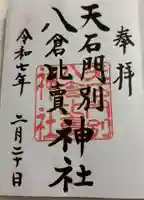 奉拝
天石門別
八倉比賣神社
令和七年
二月二十日